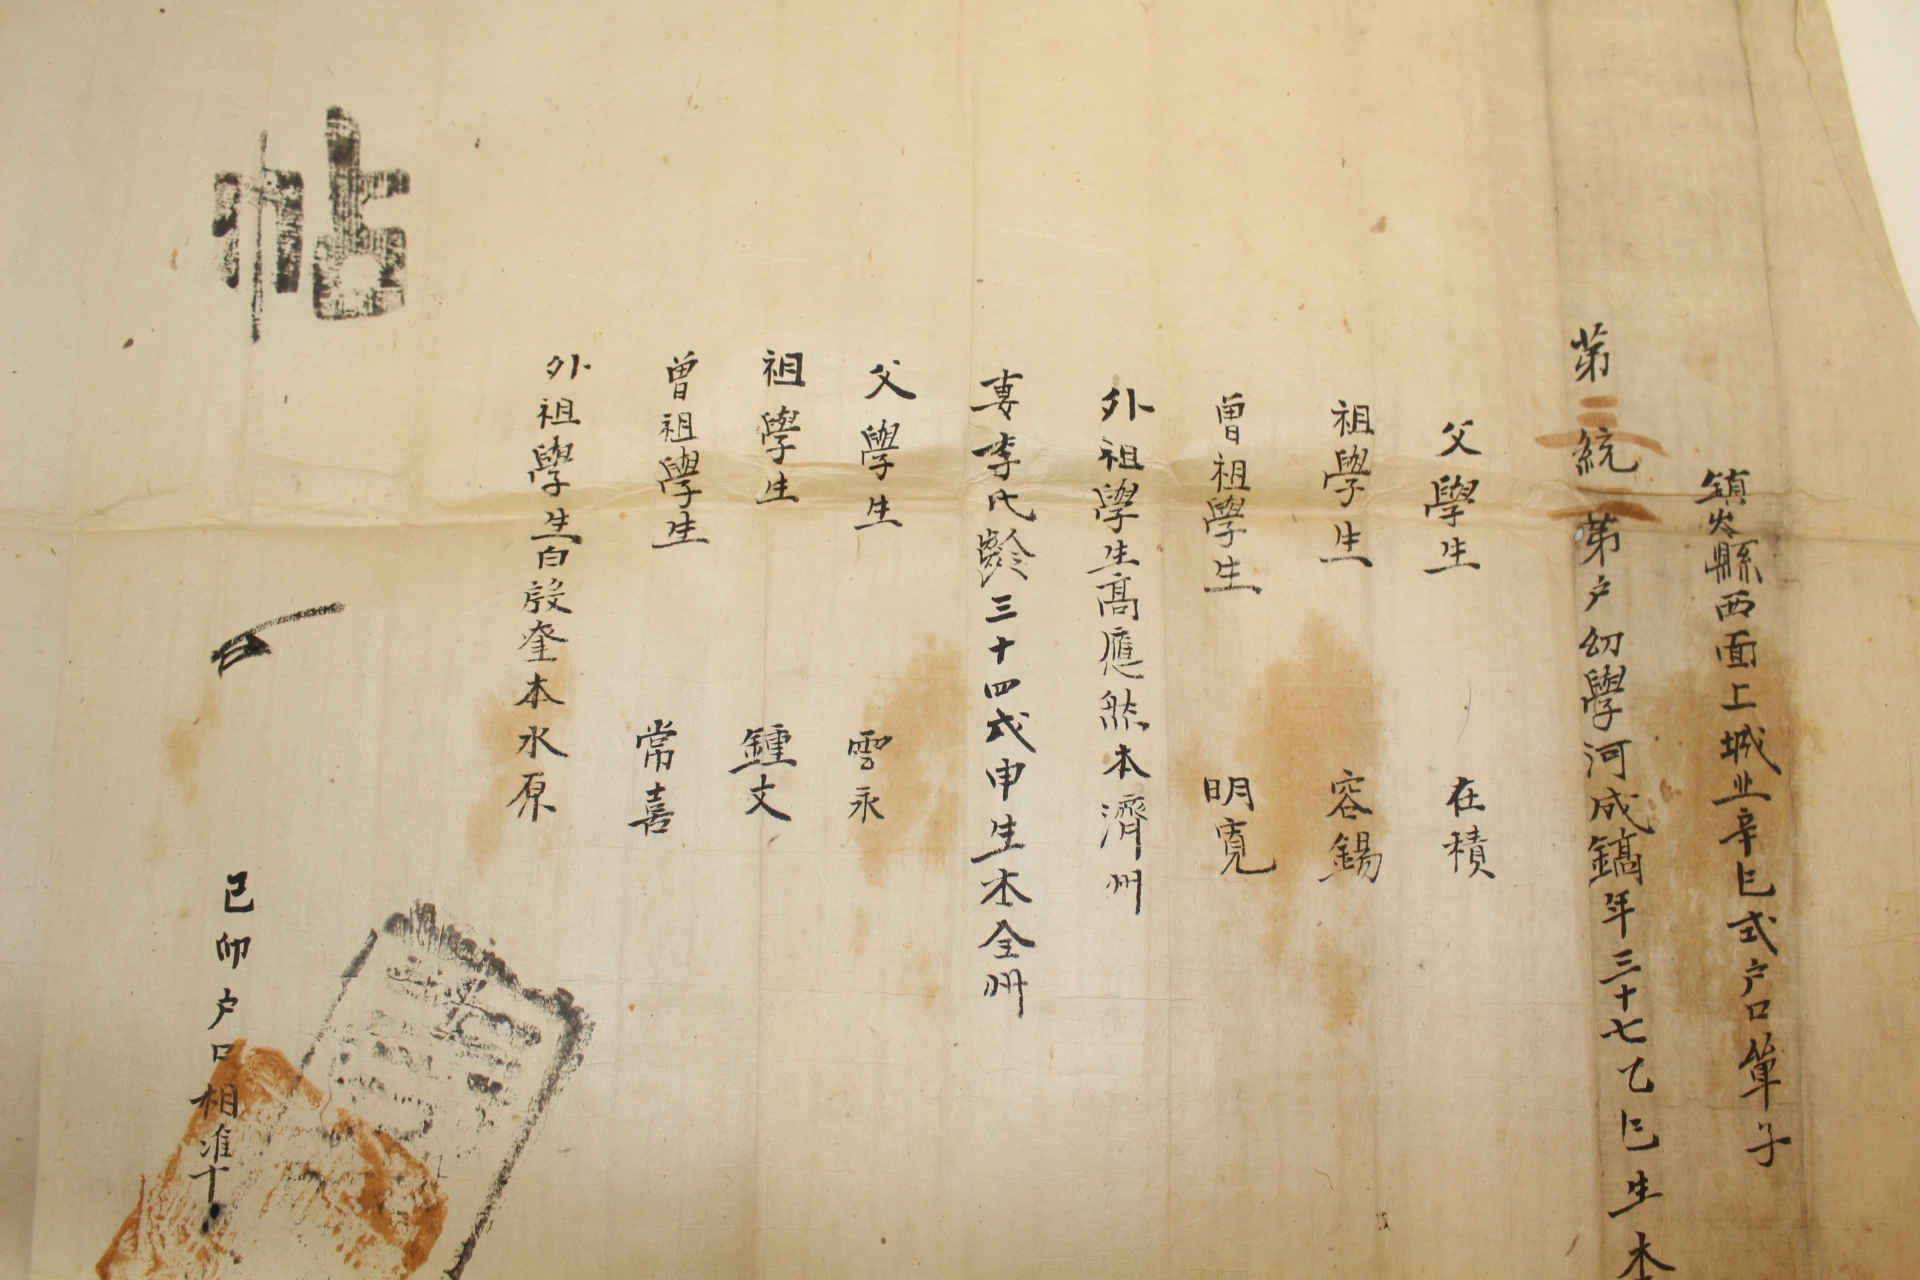 鎮岑縣西面上城北辛巳式户口單子
苐二統苐二户幼學河成鎬年三十七乙巳生本
父學生 在積
祖學生 容錫
曽祖學生 明寛
外祖學生髙應然本濟州
妻李氏齡三十四戊申生本全州
父學生 雲永
祖學生 鍾文
曽祖學生 常喜
外祖學生白殷奎本水原
帖
己卯户口相准卞